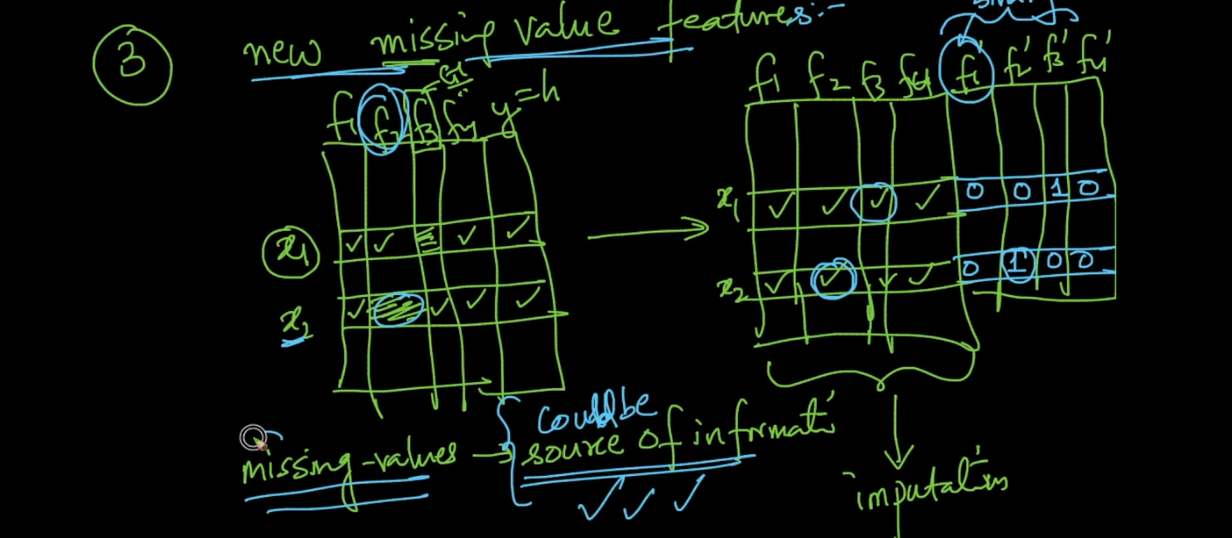 3 new missing value features:-
f1 f2 f3 f4 y=h
f1 f2 f3 f4 f1' f2' f3' f4'
x1 ✓ ✓ ✓ ✓
x1 ✓ ✓ ✓ ✓ 0 0 1 0
x2 ✓ ✓ ✓ ✓
x2 ✓ ✓ ✓ ✓ 0 1 0 0
missing-values → could be
source of informatn
✓ ✓ ✓
imputations